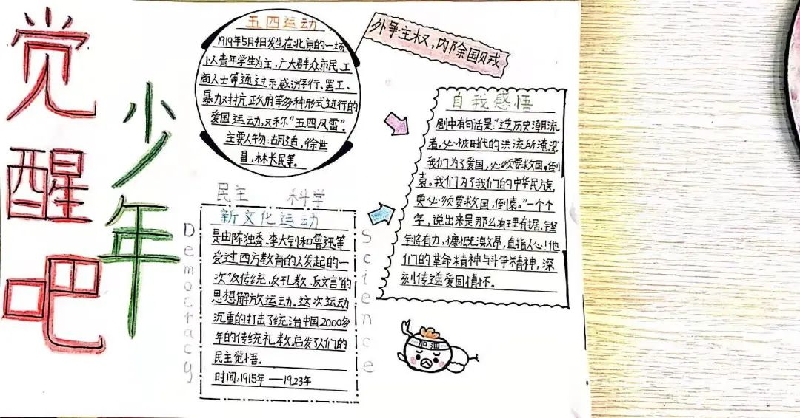 觉醒吧
少年
五四运动
1919年5月4日发生在北京的一场
以青年学生为主,广大群众市民,工
商人士等通过示威游行,罢工,
暴力对抗政府等多种形式进行的
爱国运动,又称"五四风雷"。
主要人物:胡适,徐世
昌,林长民等。
外争主权,内除国贼
自我感悟
剧中有句话是:"逆历史潮流
者,必被时代的洪流所淹没
我们为了爱国,必败
袁。我们为了我们的中华民
"一个个
年,说出来是那么有理
们的革命精神与斗争精神,深
刻传达爱国情怀。
民主 科学
新文化运动
是由陈独秀,李大钊和鲁迅等
受过西方教育的人发起的一
次"反传统,反孔教,反文言"的
思想解放运动。这次运动
沉重的打击了统治中国2000多
年的传统礼教,启发了人们的
民主觉悟。
时间:1915年——1923年
Democracy
Science
加油